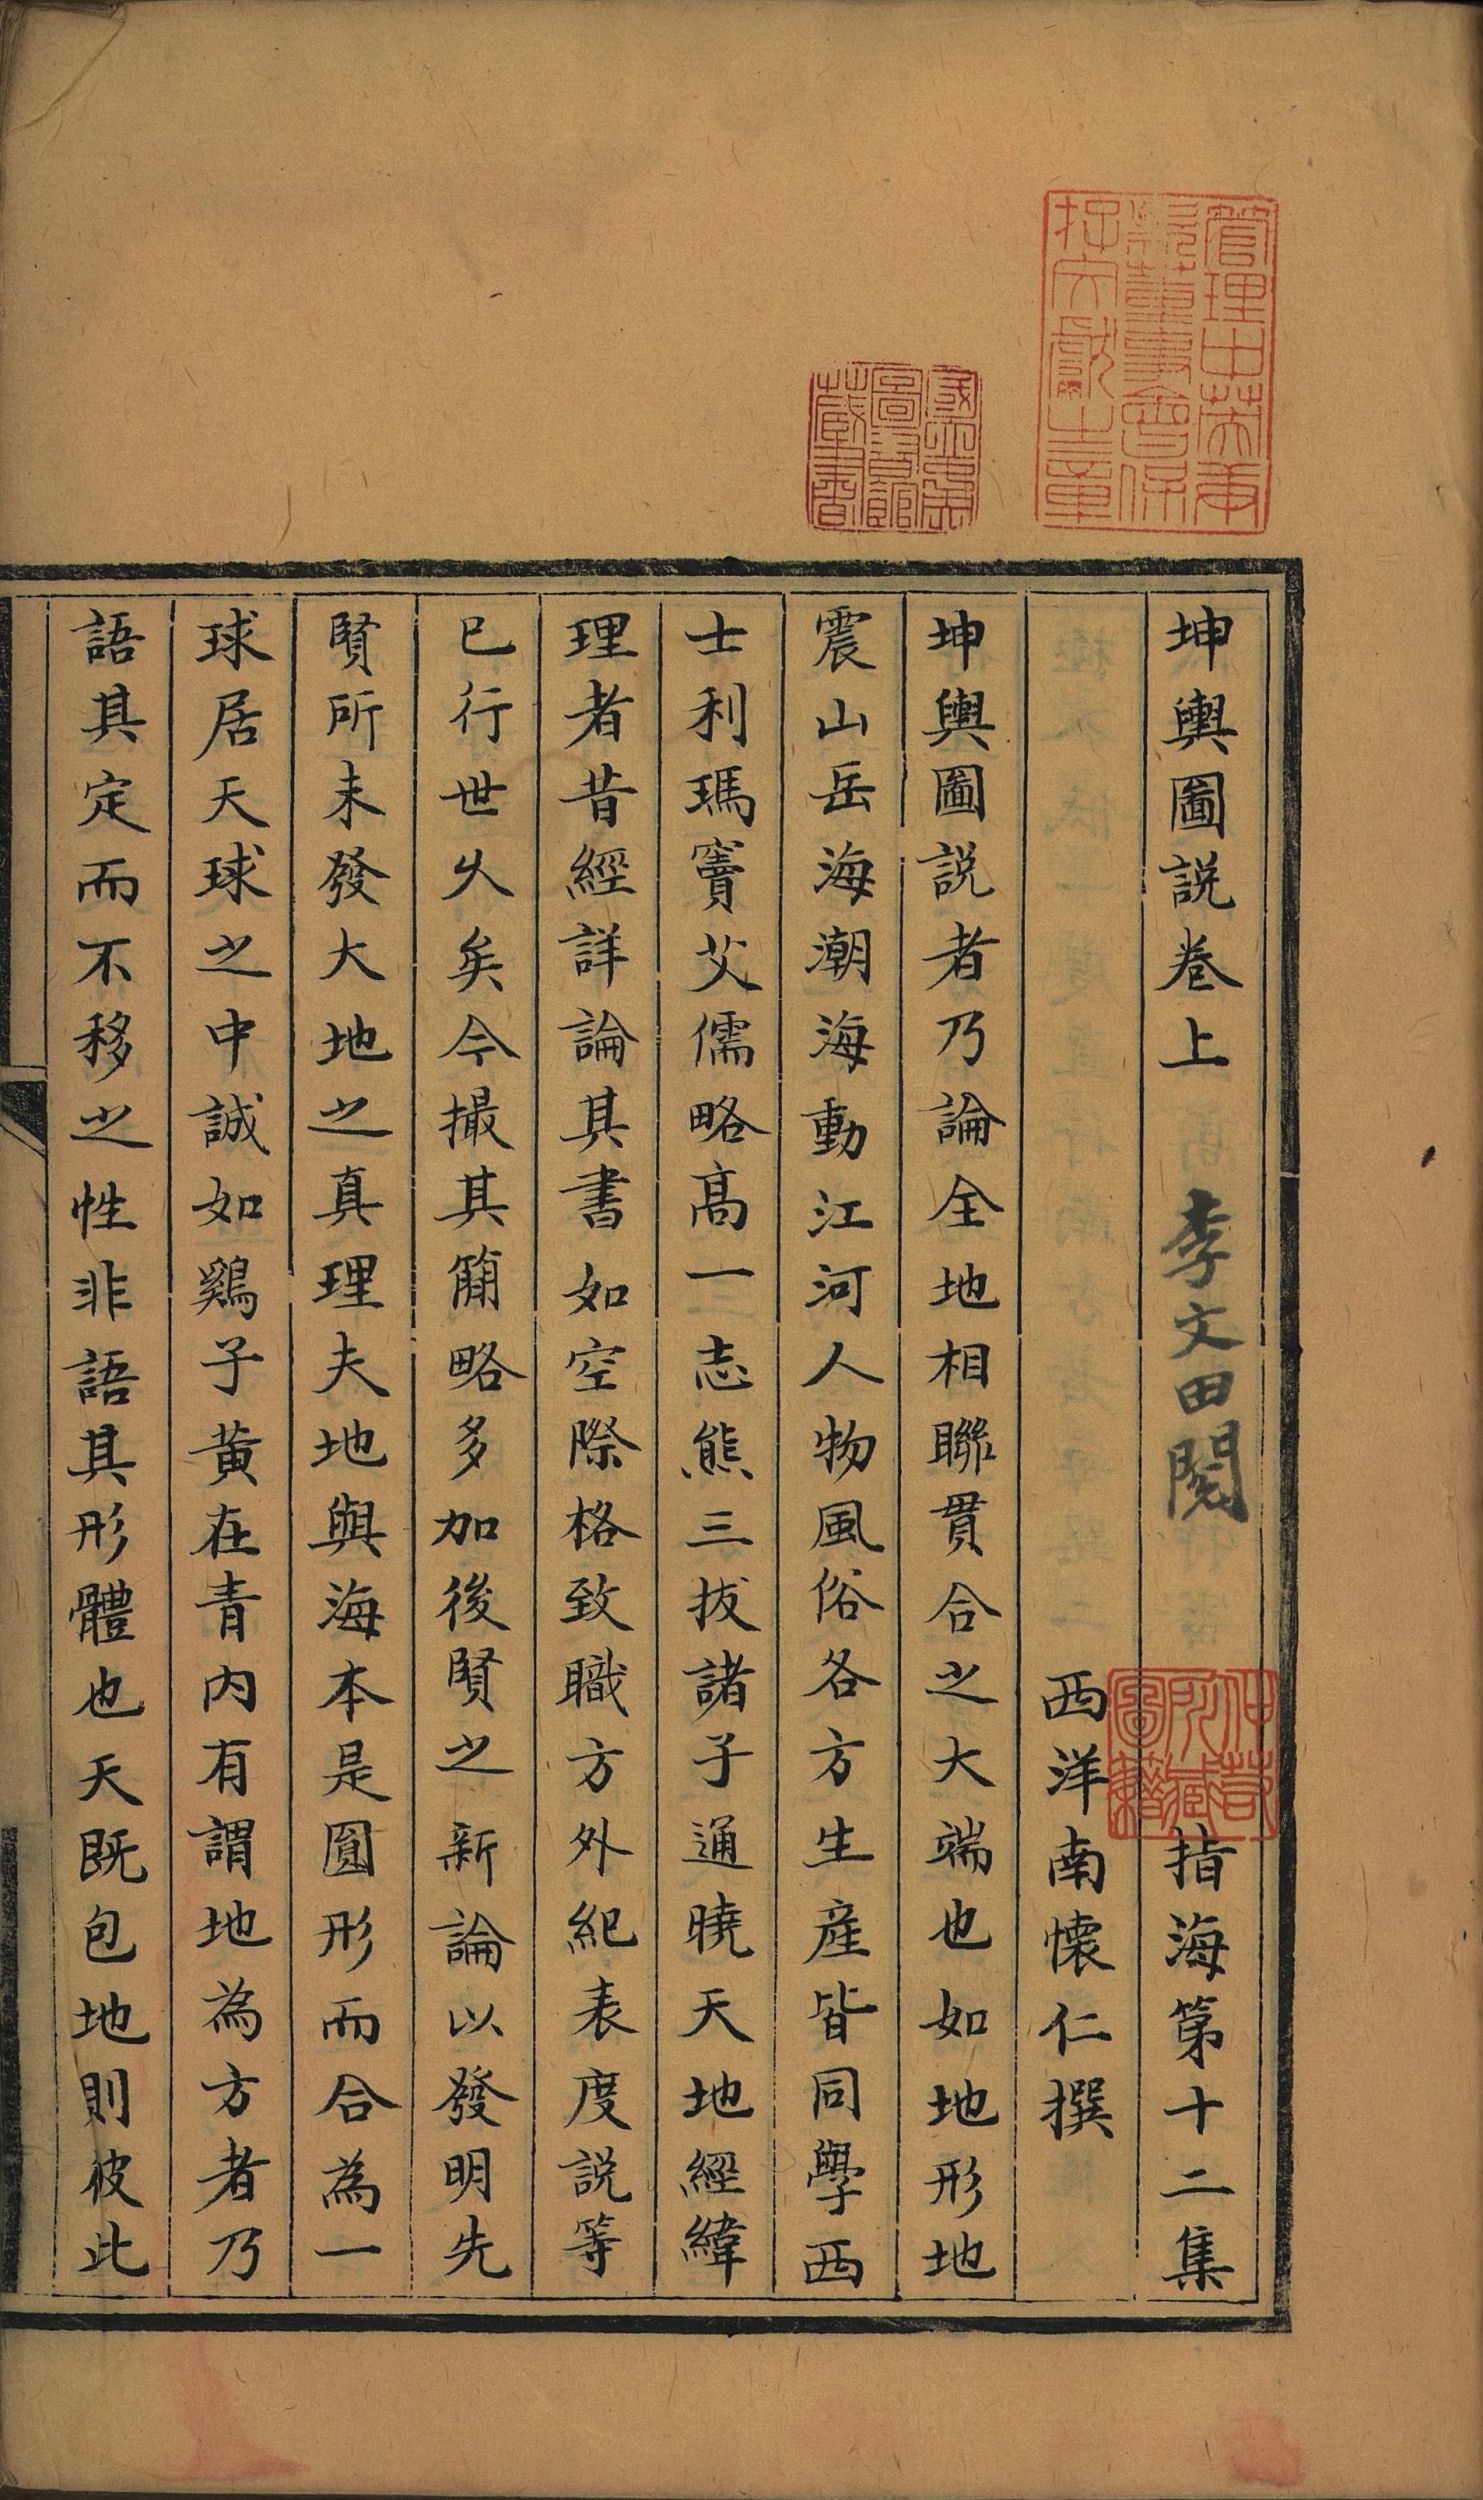 坤輿圖說卷上 李文田閱 指海第十二集
西洋南懷仁撰
坤輿圖說者乃論全地相聯貫合之大端也如地形地
震山岳海潮海動江河人物風俗各方生產皆同學西
士利瑪竇艾儒略高一志熊三拔諸子通曉天地經緯
理者昔經詳論其書如空際格致職方外紀表度說等
已行世久矣今撮其簡略多加後賢之新論以發明先
賢所未發大地之真理夫地與海本是圓形而合為一
球居天球之中誠如鷄子黄在青内有謂地為方者乃
語其定而不移之性非語其形體也天既包地則彼此
管理中英庚
款董事會保
存文獻之章
國立中央
圖書館
藏書
仲萼
所藏
圖籍